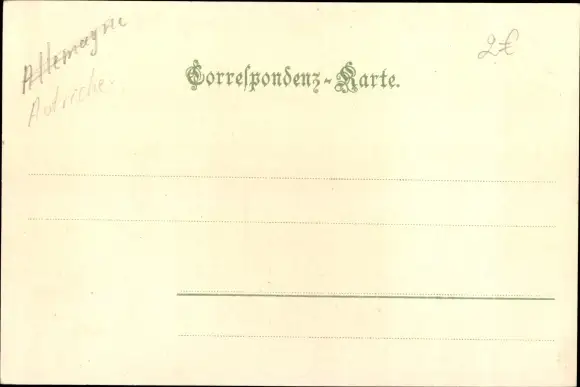 Allemagne
Autriche.
2€
Correspondenz-Karte.